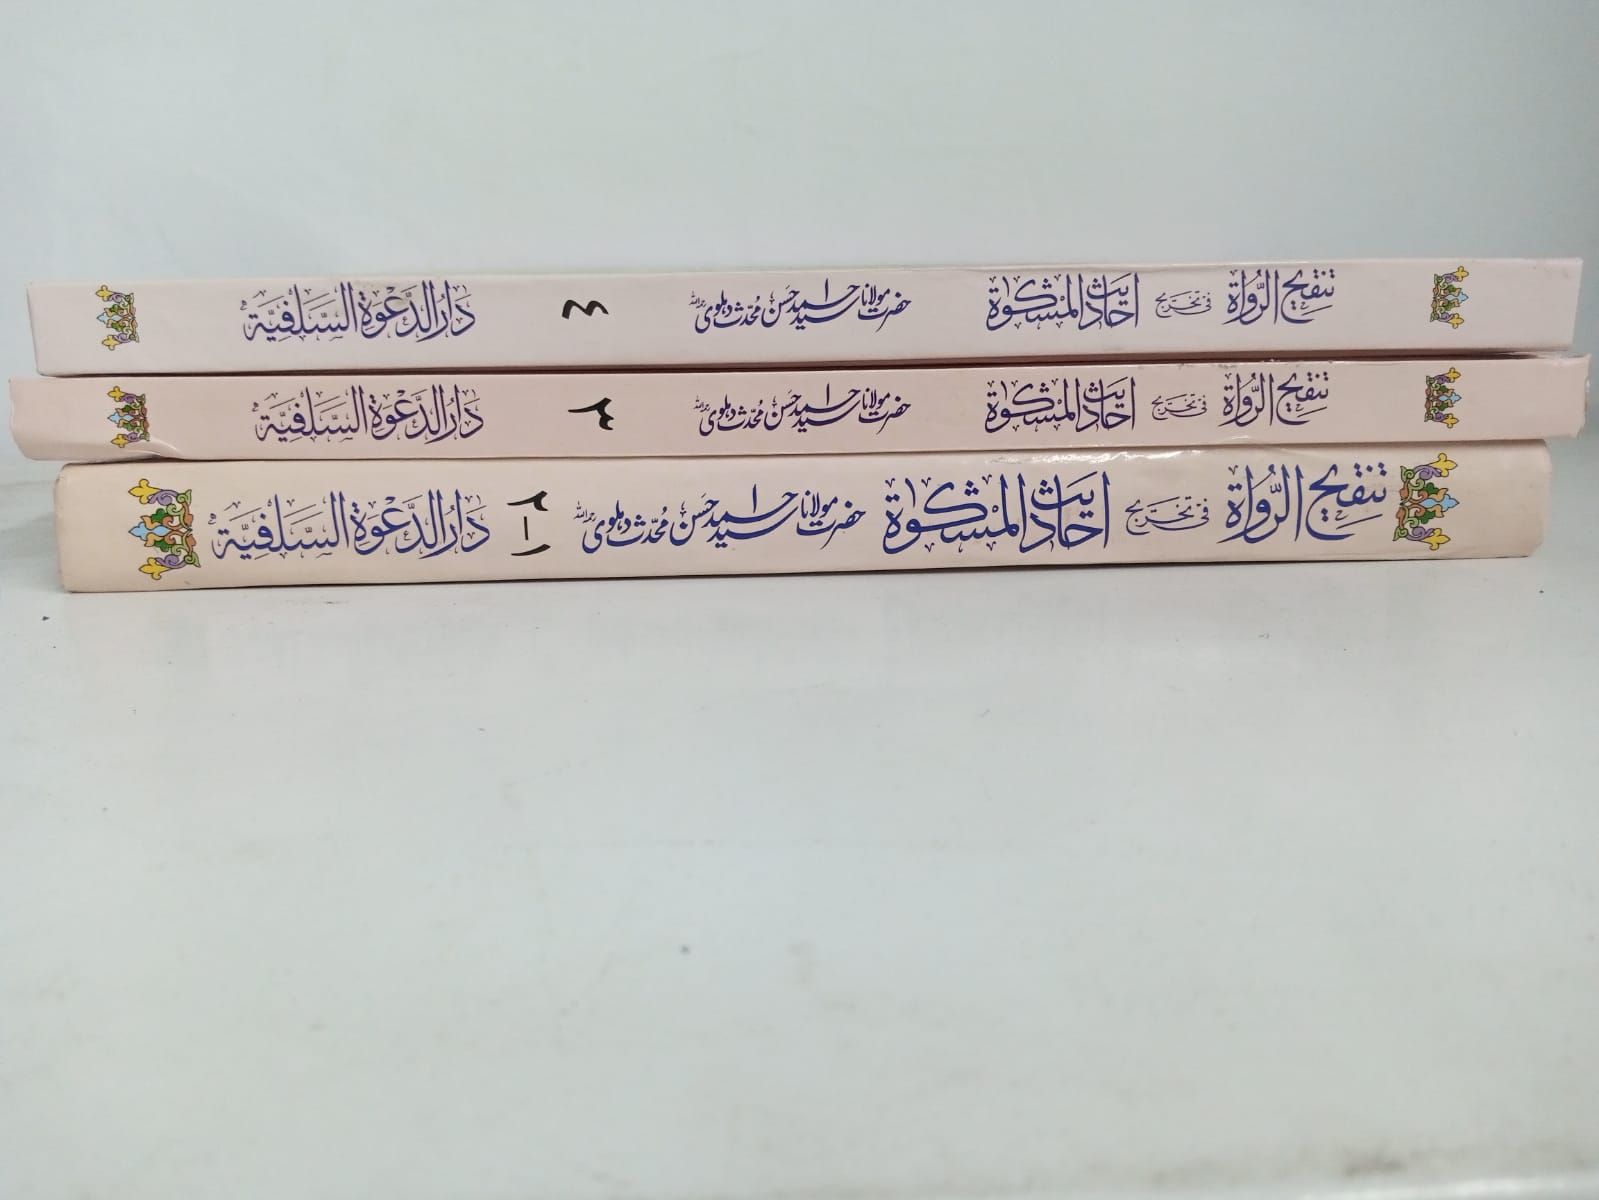 تنقيح الرواة في تخريج احاديث المشكوة حضرت مولانا سید احمد حسن محدث دہلوی رحمہ اللہ ۴ دار الدعوة السلفية
تنقيح الرواة في تخريج احاديث المشكوة حضرت مولانا سید احمد حسن محدث دہلوی رحمہ اللہ ۳ دار الدعوة السلفية
تنقيح الرواة في تخريج احاديث المشكوة حضرت مولانا سید احمد حسن محدث دہلوی رحمہ اللہ ۱-۲ دار الدعوة السلفية